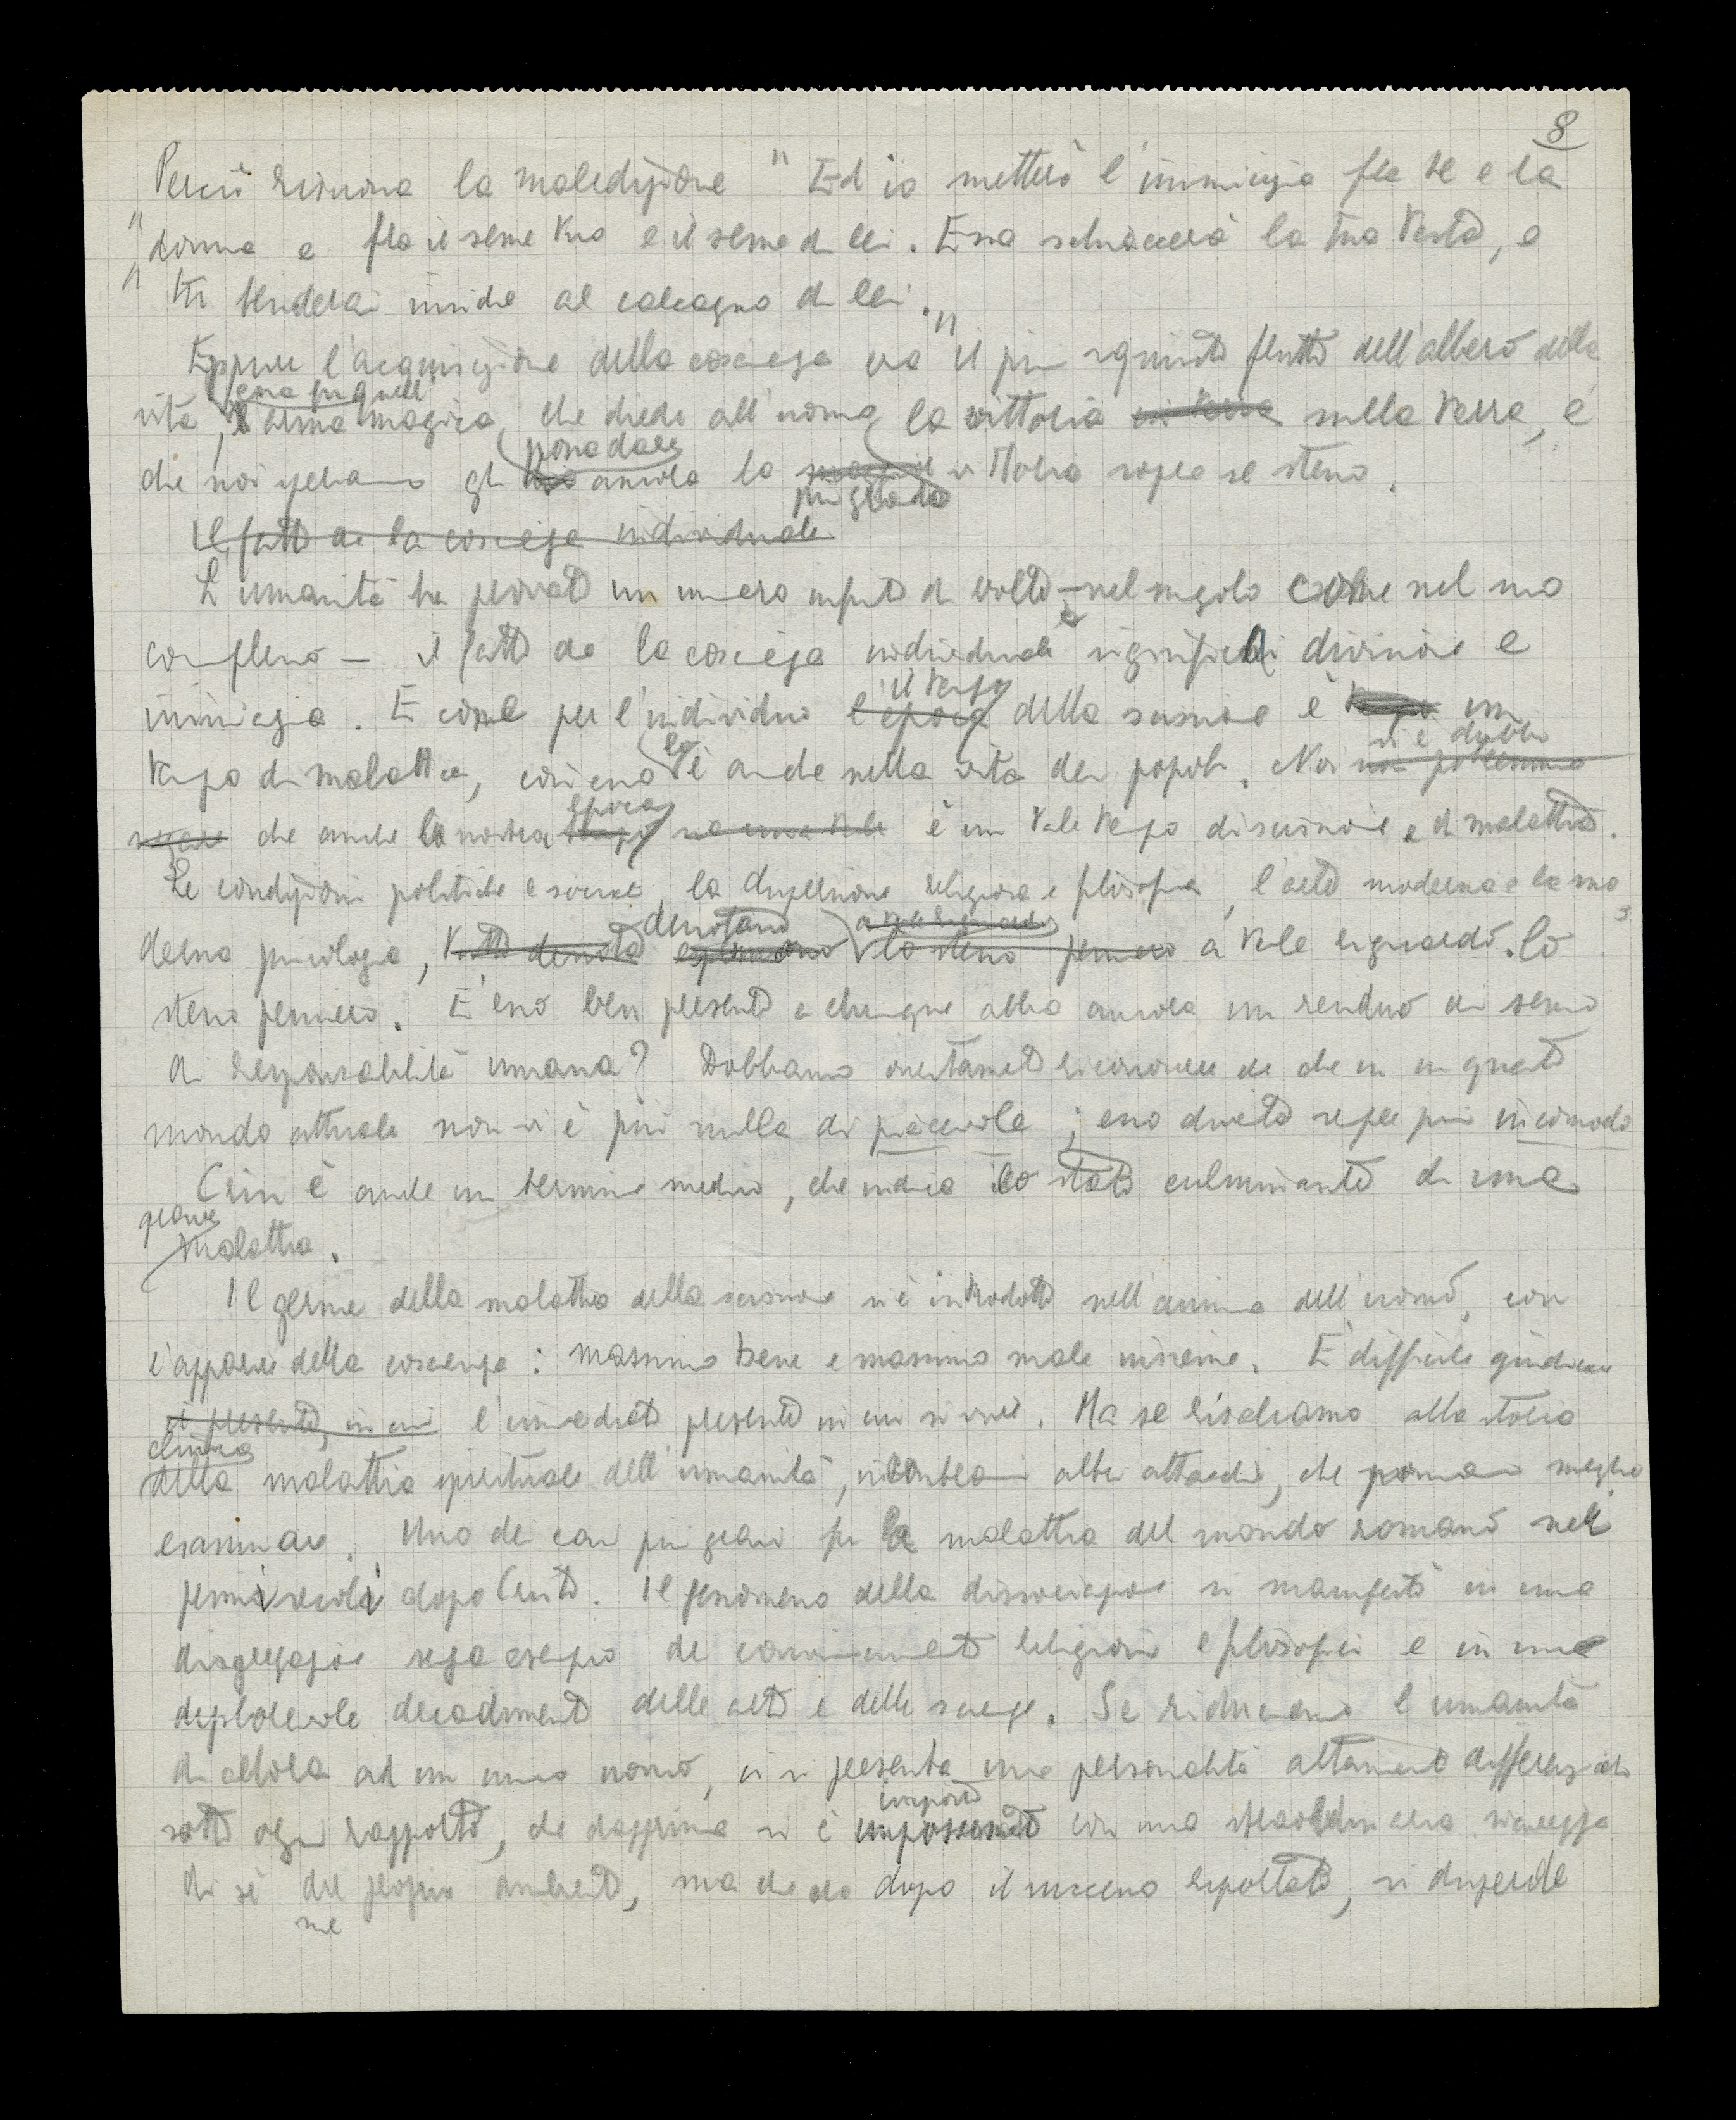 8
Perciò risuona la maledizione "Ed io metterò l'inimicizia fra te e la
"donna e fra il seme tuo e il seme di lei. Essa schiaccerà la tua testa, e
"tu tenderai insidie al calcagno di lei."
Eppure l'acquisizione della coscienza era il più squisito frutto dell'albero della
vita, essa fu quell' arma magica, che diede all'uomo la vittoria in terra sulla terra, e
che noi speriamo gli possa dare ancora la più grande vittoria sopra se stesso.
Il fatto che la coscienza individuale
L'umanità ha provato un numero infinito di volte – nel singolo come nel suo
complesso – il fatto che la coscienza individuale significhi divisione e
inimicizia. E come per l'individuo l'epoca il tempo della scissione è tempo un
tempo di malattia, così essa lo è anche nella vita dei popoli. Non non potremmo vi è dubbio
negare che anche la nostra epoca sia una tale è un tale tempo di scissione e di malattia.
Le condizioni politiche e sociali, la dispersione religiosa e filosofica, l'arte moderna e la mo
derna psicologia, tutto denota denotano esprimono lo stesso pensiero a tale riguardo lo
stesso pensiero. È esso ben presente a chiunque abbia ancora un residuo di senso
di responsabilità umana? Dobbiamo onestamente riconoscere che in questo
mondo attuale non vi è più nulla di piacevole; esso diventa sempre più incomodo
Crisi è anche un termine medico, che indica lo stato culminante di una
grave malattia.
Il germe della malattia della scissione si è introdotto nell'anima dell'uomo, con
l'apparire della coscienza: massimo bene e massimo male insieme. È difficile giudicare
il presente, in cui l'immediato presente in cui si vive. Ma se risaliamo alla storia
clinica della malattia spirituale dell'umanità, incontriamo altri attacchi, che possiamo meglio
esaminare. Uno dei casi più gravi fu la malattia del mondo romano nei
primi secoli dopo Cristo. Il fenomeno della dissociazione si manifestò in una
disgregazione senza esempio dei convincimenti religiosi e filosofici e in una
deplorevole decadimento delle arti e delle scienze. Se riduciamo l'umanità
di allora ad un unico uomo, ci si presenta una personalità altamente differenziata
sotto ogni rapporto, che dapprima si è imposta con una straordinaria sicurezza
di sé nel proprio ambiente, ma che ora dopo il successo riportato, si disperde